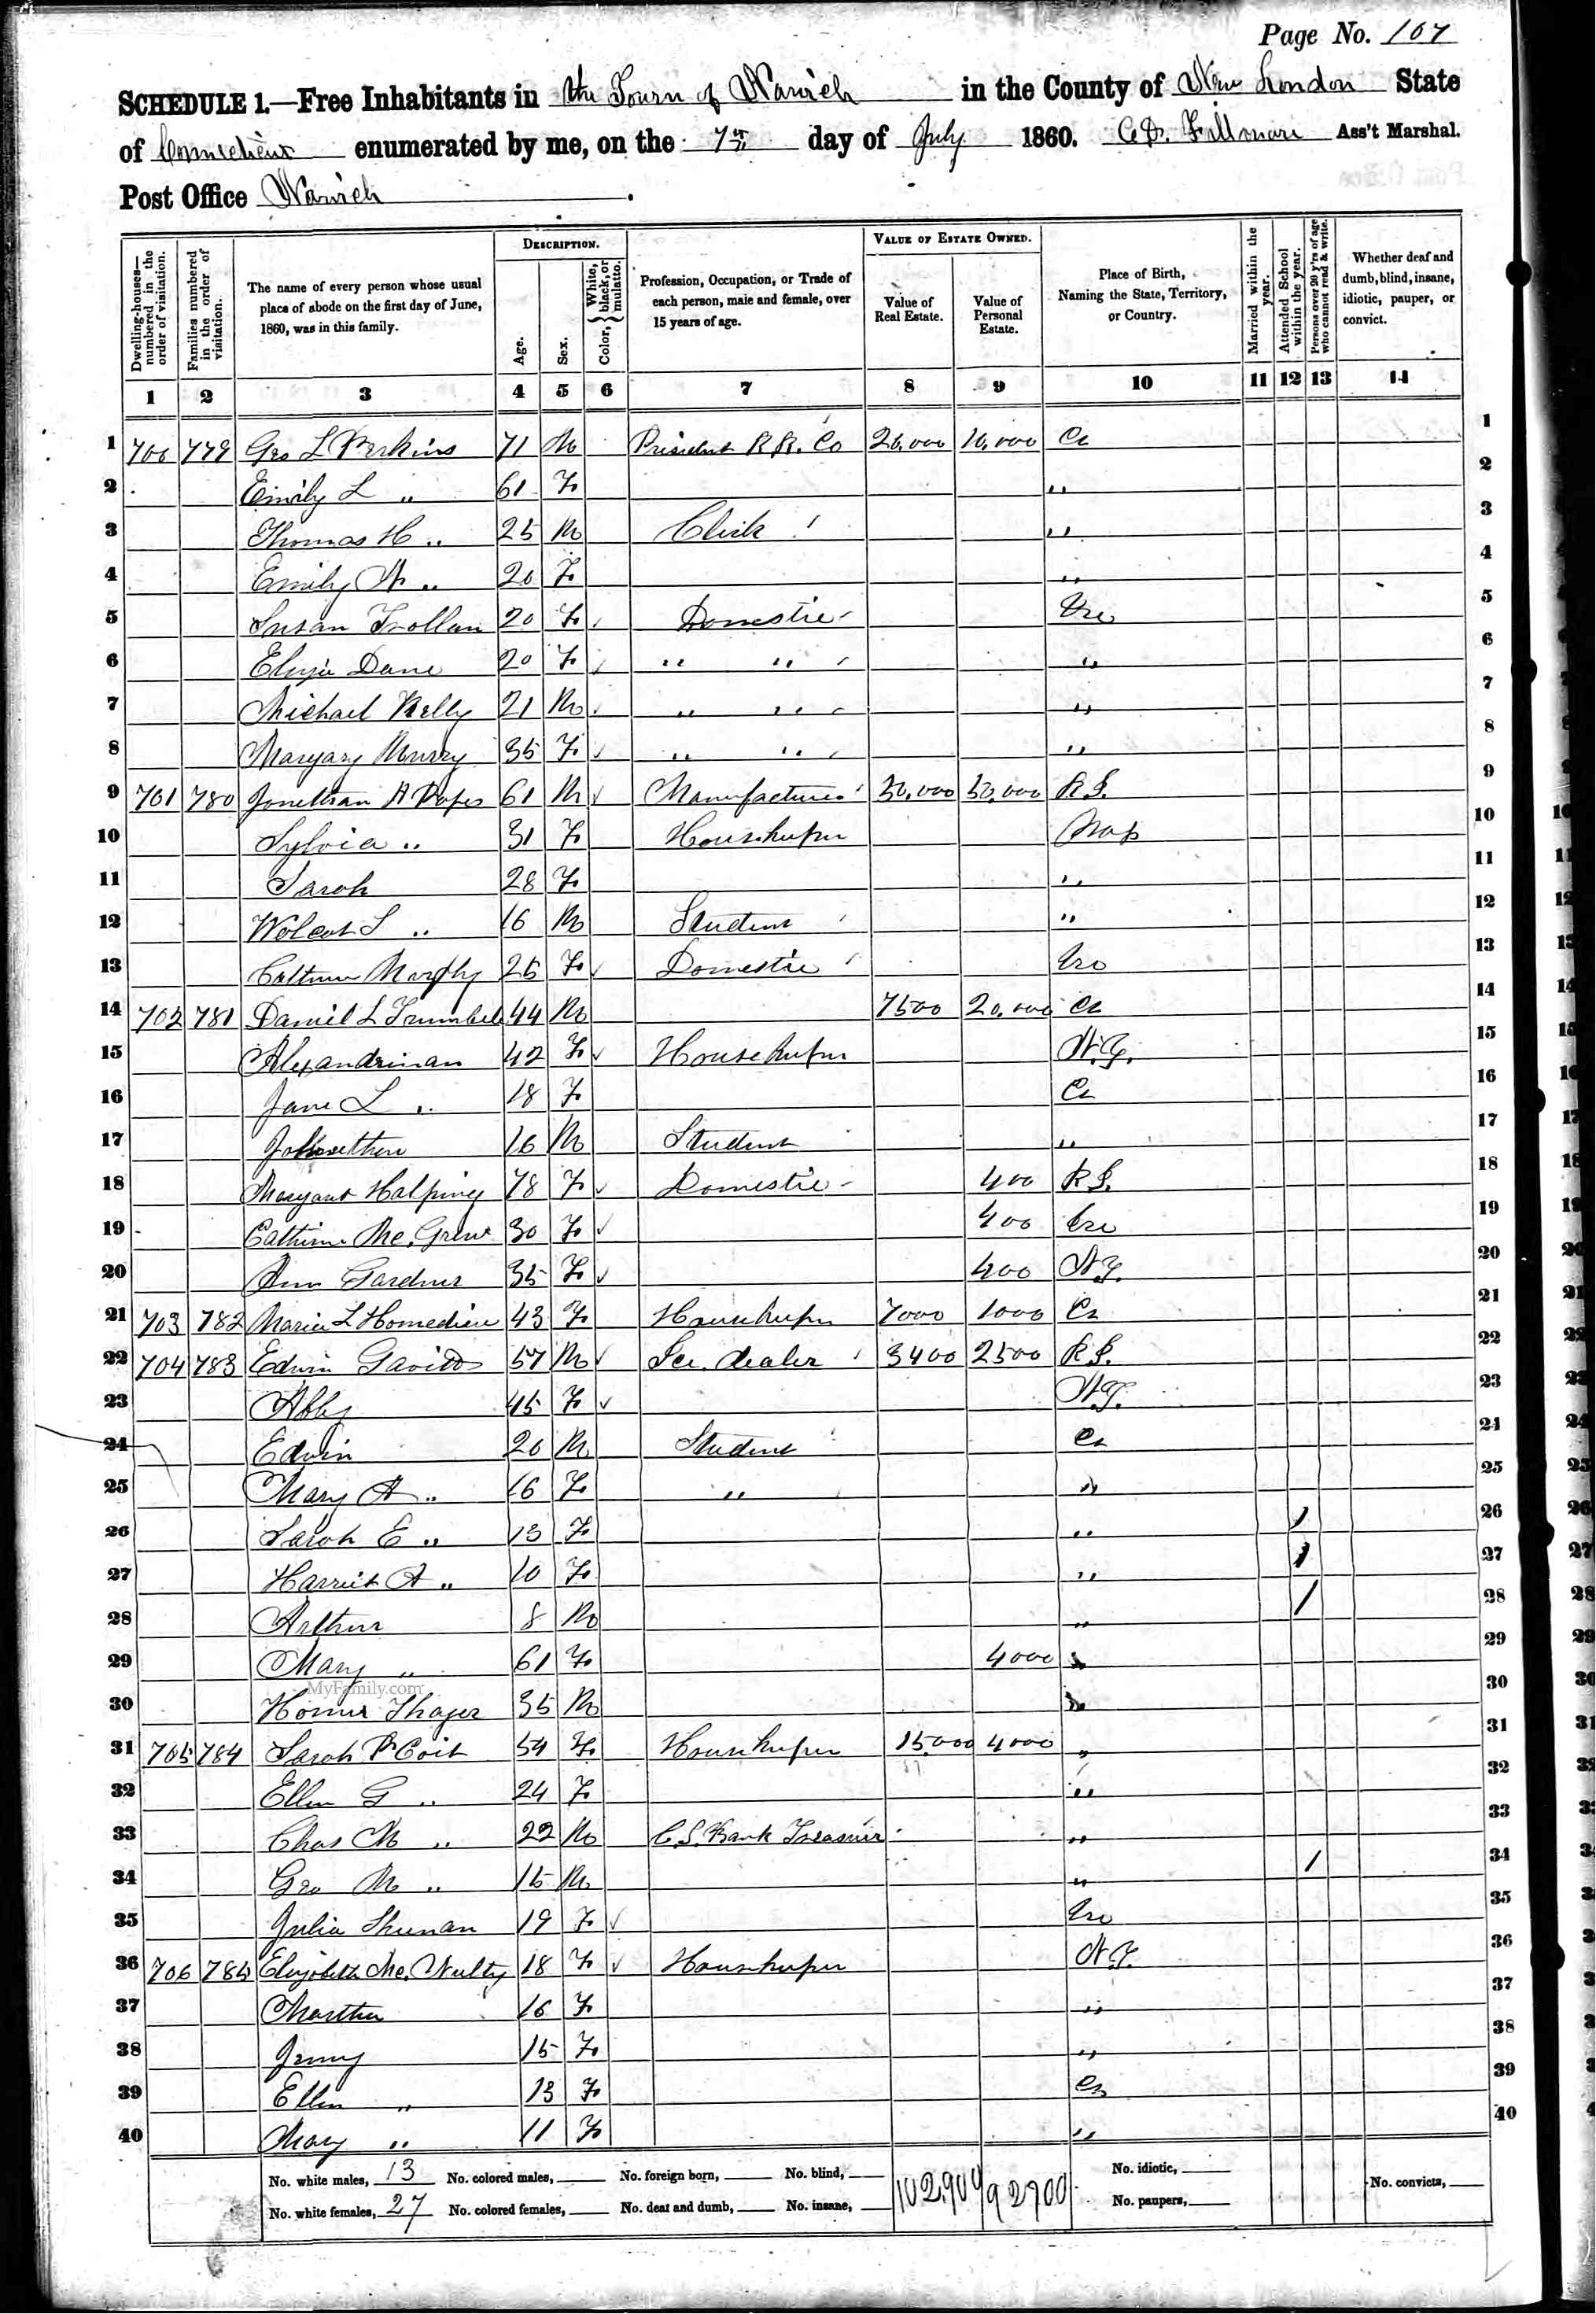 Page No. 107
SCHEDULE 1.—Free Inhabitants in the Town of Norwich in the County of New London State
of Connecticut enumerated by me, on the 7th day of July 1860. Ass't Marshal.
Post Office Norwich.
Dwelling-houses—numbered in the order of visitation. Families numbered in the order of visitation. The name of every person whose usual place of abode on the first day of June, 1860, was in this family. DESCRIPTION. Age. Sex. Color, { White, black, or mulatto. Profession, Occupation, or Trade of each person, male and female, over 15 years of age. VALUE OF ESTATE OWNED. Value of Real Estate. Value of Personal Estate. Place of Birth, Naming the State, Territory, or Country. Married within the year. Attended School within the year. Persons over 20 y'rs of age who cannot read & write. Whether deaf and dumb, blind, insane, idiotic, pauper, or convict.
1 2 3 4 5 6 7 8 9 10 11 12 13 14
1 700 779 Geo L Perkins 71 M President R.R. Co 20,000 10,000 Ct 1
2 Emily L " 61 F " 2
3 Thomas H " 25 M Clerk " 3
4 Emily " 20 F " 4
5 Susan 20 F Domestic Ire 5
6 Dane 20 F " " " 6
7 Michael Kelly 21 M " " " 7
8 35 F " " " 8
9 701 780 Jonathan A 61 M Manufacturer 50,000 50,000 R.I. 9
10 Sylvia " 31 F Housekeeper Mass 10
11 Sarah 28 F " 11
12 Wolcot L " 16 M Student " 12
13 Murphy 25 F Domestic Ire 13
14 702 781 Daniel L Trumbull 44 M 7500 20,000 Ct 14
15 42 F Housekeeper N.Y. 15
16 Jane L " 18 F Ct 16
17 16 M Student " 17
18 78 F Domestic 400 R.I. 18
19 30 F 400 Ire 19
20 Ann Gardner 35 F 400 N.Y. 20
21 703 782 Maria L Homedieu 43 F Housekeeper 7000 1000 Ct 21
22 704 783 Edwin 57 M Ice dealer 3400 2500 R.I. 22
23 Abby 45 F N.Y. 23
24 Edwin 20 M Student Ct 24
25 Mary A " 16 F " " 25
26 Sarah E " 13 F " / 26
27 Harriet A " 10 F " / 27
28 Arthur 8 M " / 28
29 Mary " 61 F 4000 " 29
MyFamily.com
30 Homer Thayer 35 M " 30
31 705 784 Sarah P Coit 54 F Housekeeper 15,000 4000 " 31
32 Ellen G " 24 F " 32
33 Chas M " 22 M C.S. Bank Treasurer " 33
34 Geo M " 15 M " / 34
35 Julia 19 F Ire 35
36 706 785 Elizabeth Mc.Nulty 18 F Housekeeper N.Y. 36
37 Martha 16 F " 37
38 Jenny 15 F " 38
39 Ellen " 13 F Ct 39
40 Mary " 11 F " 40
No. white males, 13 No. colored males, No. foreign born, No. blind, 102,900 92700 No. idiotic, No. convicts,
No. white females, 27 No. colored females, No. deaf and dumb, No. insane, No. paupers,